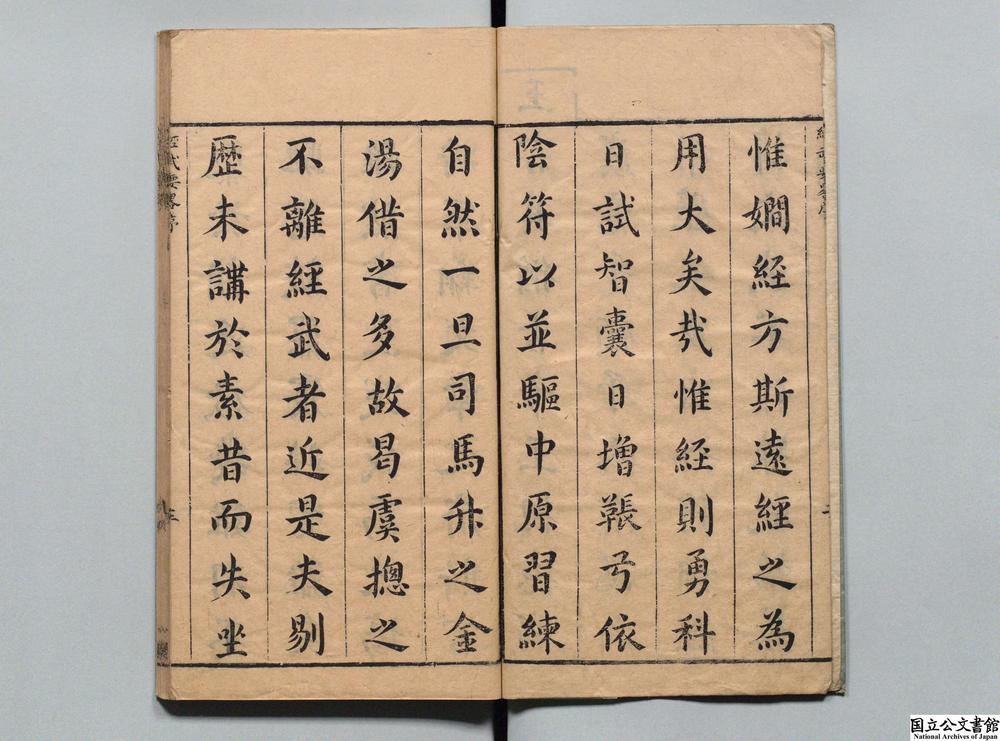 惟嫺経方斯遠經之為
用大矣㢤惟経則勇科
日試智囊日增韔弓依
陰符以並驅中原習練
自然一旦司馬升之金
湯借之多故曷虞摠之
不離經武者近是夫剔
歷未講於素昔而失坐
經武要畧序
三
国立公文書館
National Archives of Japan